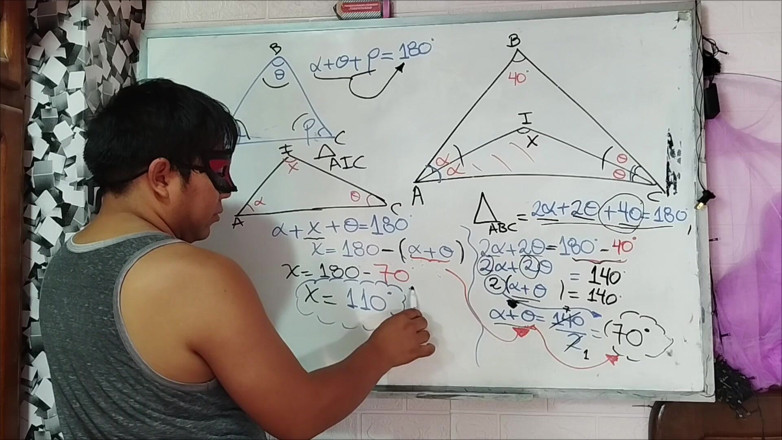 B
θ
α+θ+ρ=180°
ρ
C
I
△AIC
x
α
θ
A
C
α+x+θ=180°
x=180-(α+θ)
x=180-70
x=110°
B
40°
I
x
α
α
θ
θ
A
C
△ABC=2α+2θ+40=180°
2α+2θ=180-40°
2α+2θ=140
2(α+θ)=140
α+θ=140/2=70°
1